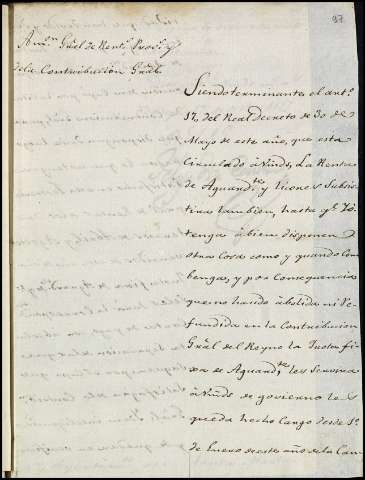 97.
Am.on Gräl de Rent.s Prov.s y
de la Contribución Gräl.
Siendo terminante el art.o
17, del Real Decreto de 30 de
Mayo de este año, que está
Circulado à Vmds, La Renta
de Aguard.tes y licores Subsis
tirá tambien, hasta q.e Yó
tenga à bien disponer
otra Cosa como y quando Com
benga, y por Consequencia
que no ha sido abolida ni Re
fundida en la Contribucion
Gräl del Reyno la Quota fi
xa de Aguard.tes les Servirà
à Vmds de govierno le
queda hecho Cargo desde 1.o
de Enero de este año de la Can